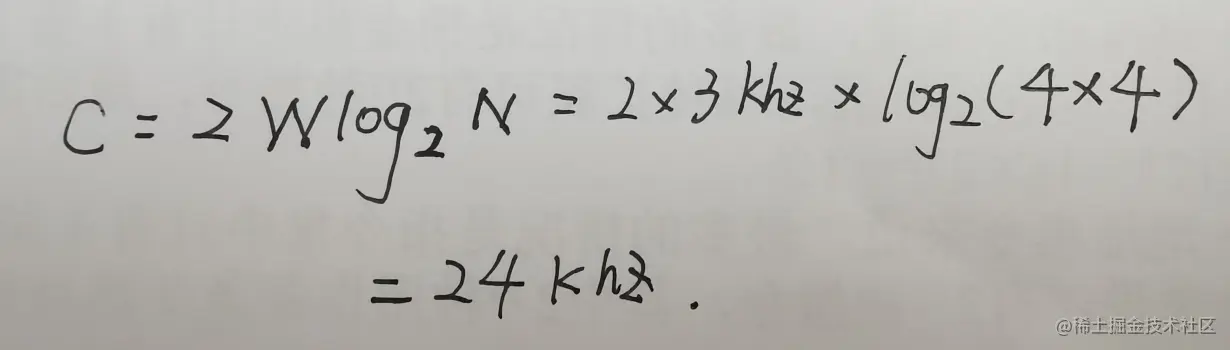 C = 2 W log₂ N = 2 × 3 khz × log₂(4×4)
= 24 khz.
@稀土掘金技术社区